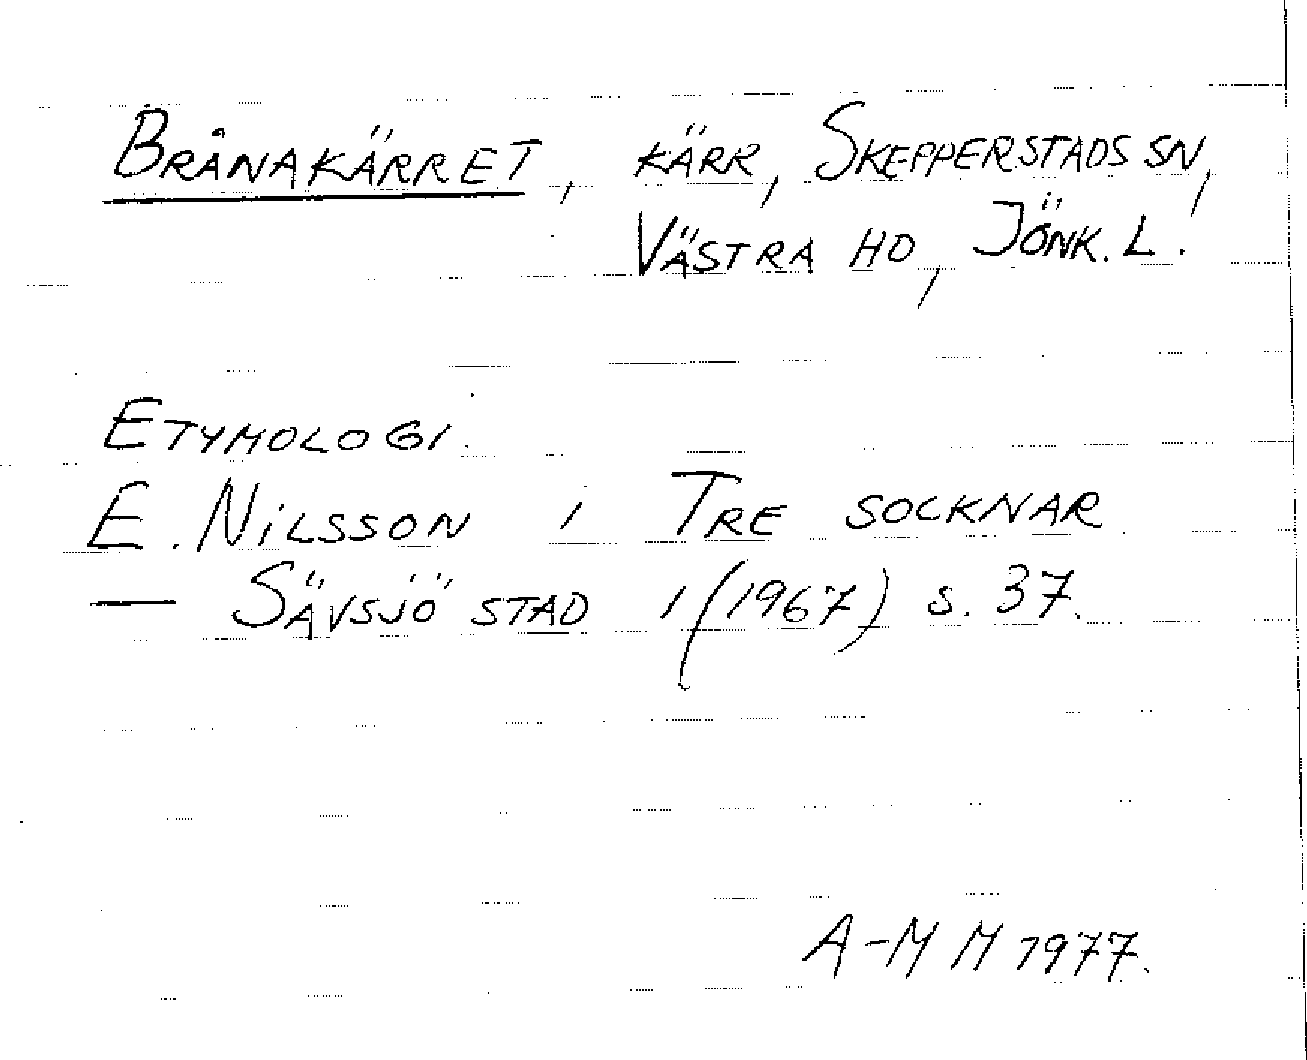 BRÅNAKÄRRET, KÄRR, SKEPPERSTADS SN,
VÄSTRA HD, JÖNK. L.
ETYMOLOGI.
E. NILSSON I TRE SOCKNAR
— SÄVSJÖ STAD 1 (1967) S. 37.
A-M M 1977.